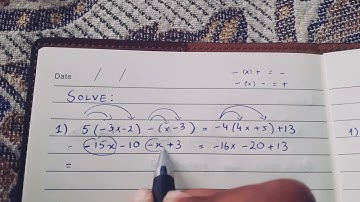 Date / /
- (x) + = -
- (x) - = +
SOLVE:
1) 5(-3x-2) -(x-3) = -4(4x+5)+13
= -15x -10 -x +3 = -16x -20 +13
=
1)